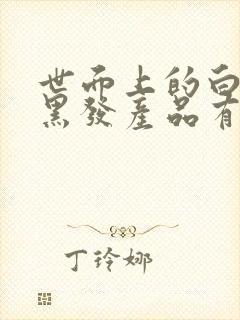 世面上的白
黑發產品有
丁玲娜